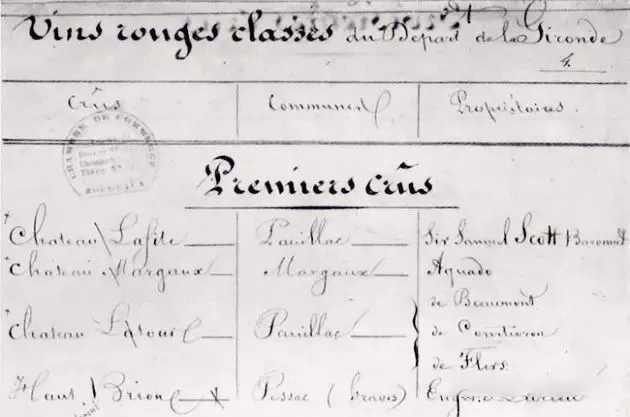 Vins rouges classés du Départ de la Gironde
Crûs Communes Propriétaires.
CHAMBRE DE COMMERCE
BORDEAUX
Premiers crûs
Chateau Lafite Pauillac Sir Samuel Scott Baronnet
Chateau Margaux Margaux Aguado
de Beaumont
Chateau Latour Pauillac de Courtivron
de Flers.
Haut Brion Pessac (Graves)